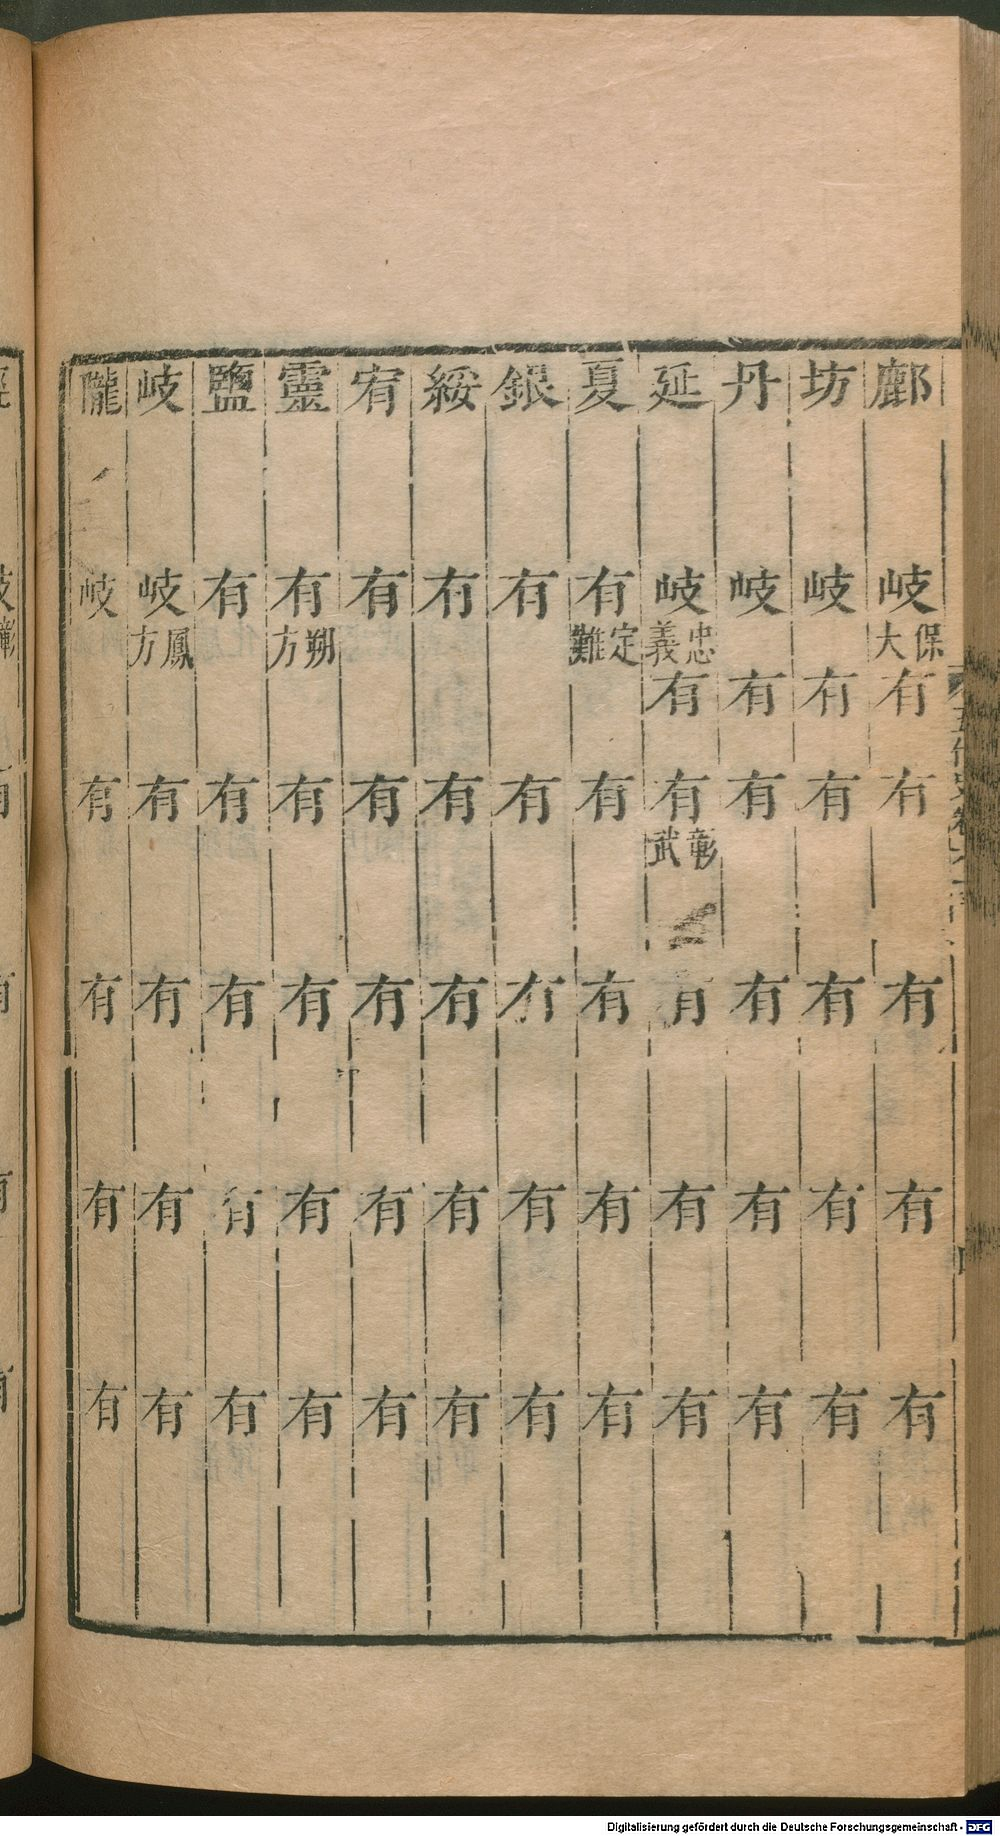 鄜 岐 保大 有 有 有 有 有
坊 岐 有 有 有 有 有
丹 岐 有 有 有 有 有
延 岐 忠義 有 有 彰武 有 有 有
夏 有 定難 有 有 有 有
銀 有 有 有 有 有
綏 有 有 有 有 有
宥 有 有 有 有 有
靈 有 朔方 有 有 有 有
鹽 有 有 有 有 有
岐 岐 鳳方 有 有 有 有
隴 岐 有 有 有 有
Digitalisierung gefördert durch die Deutsche Forschungsgemeinschaft - DFG